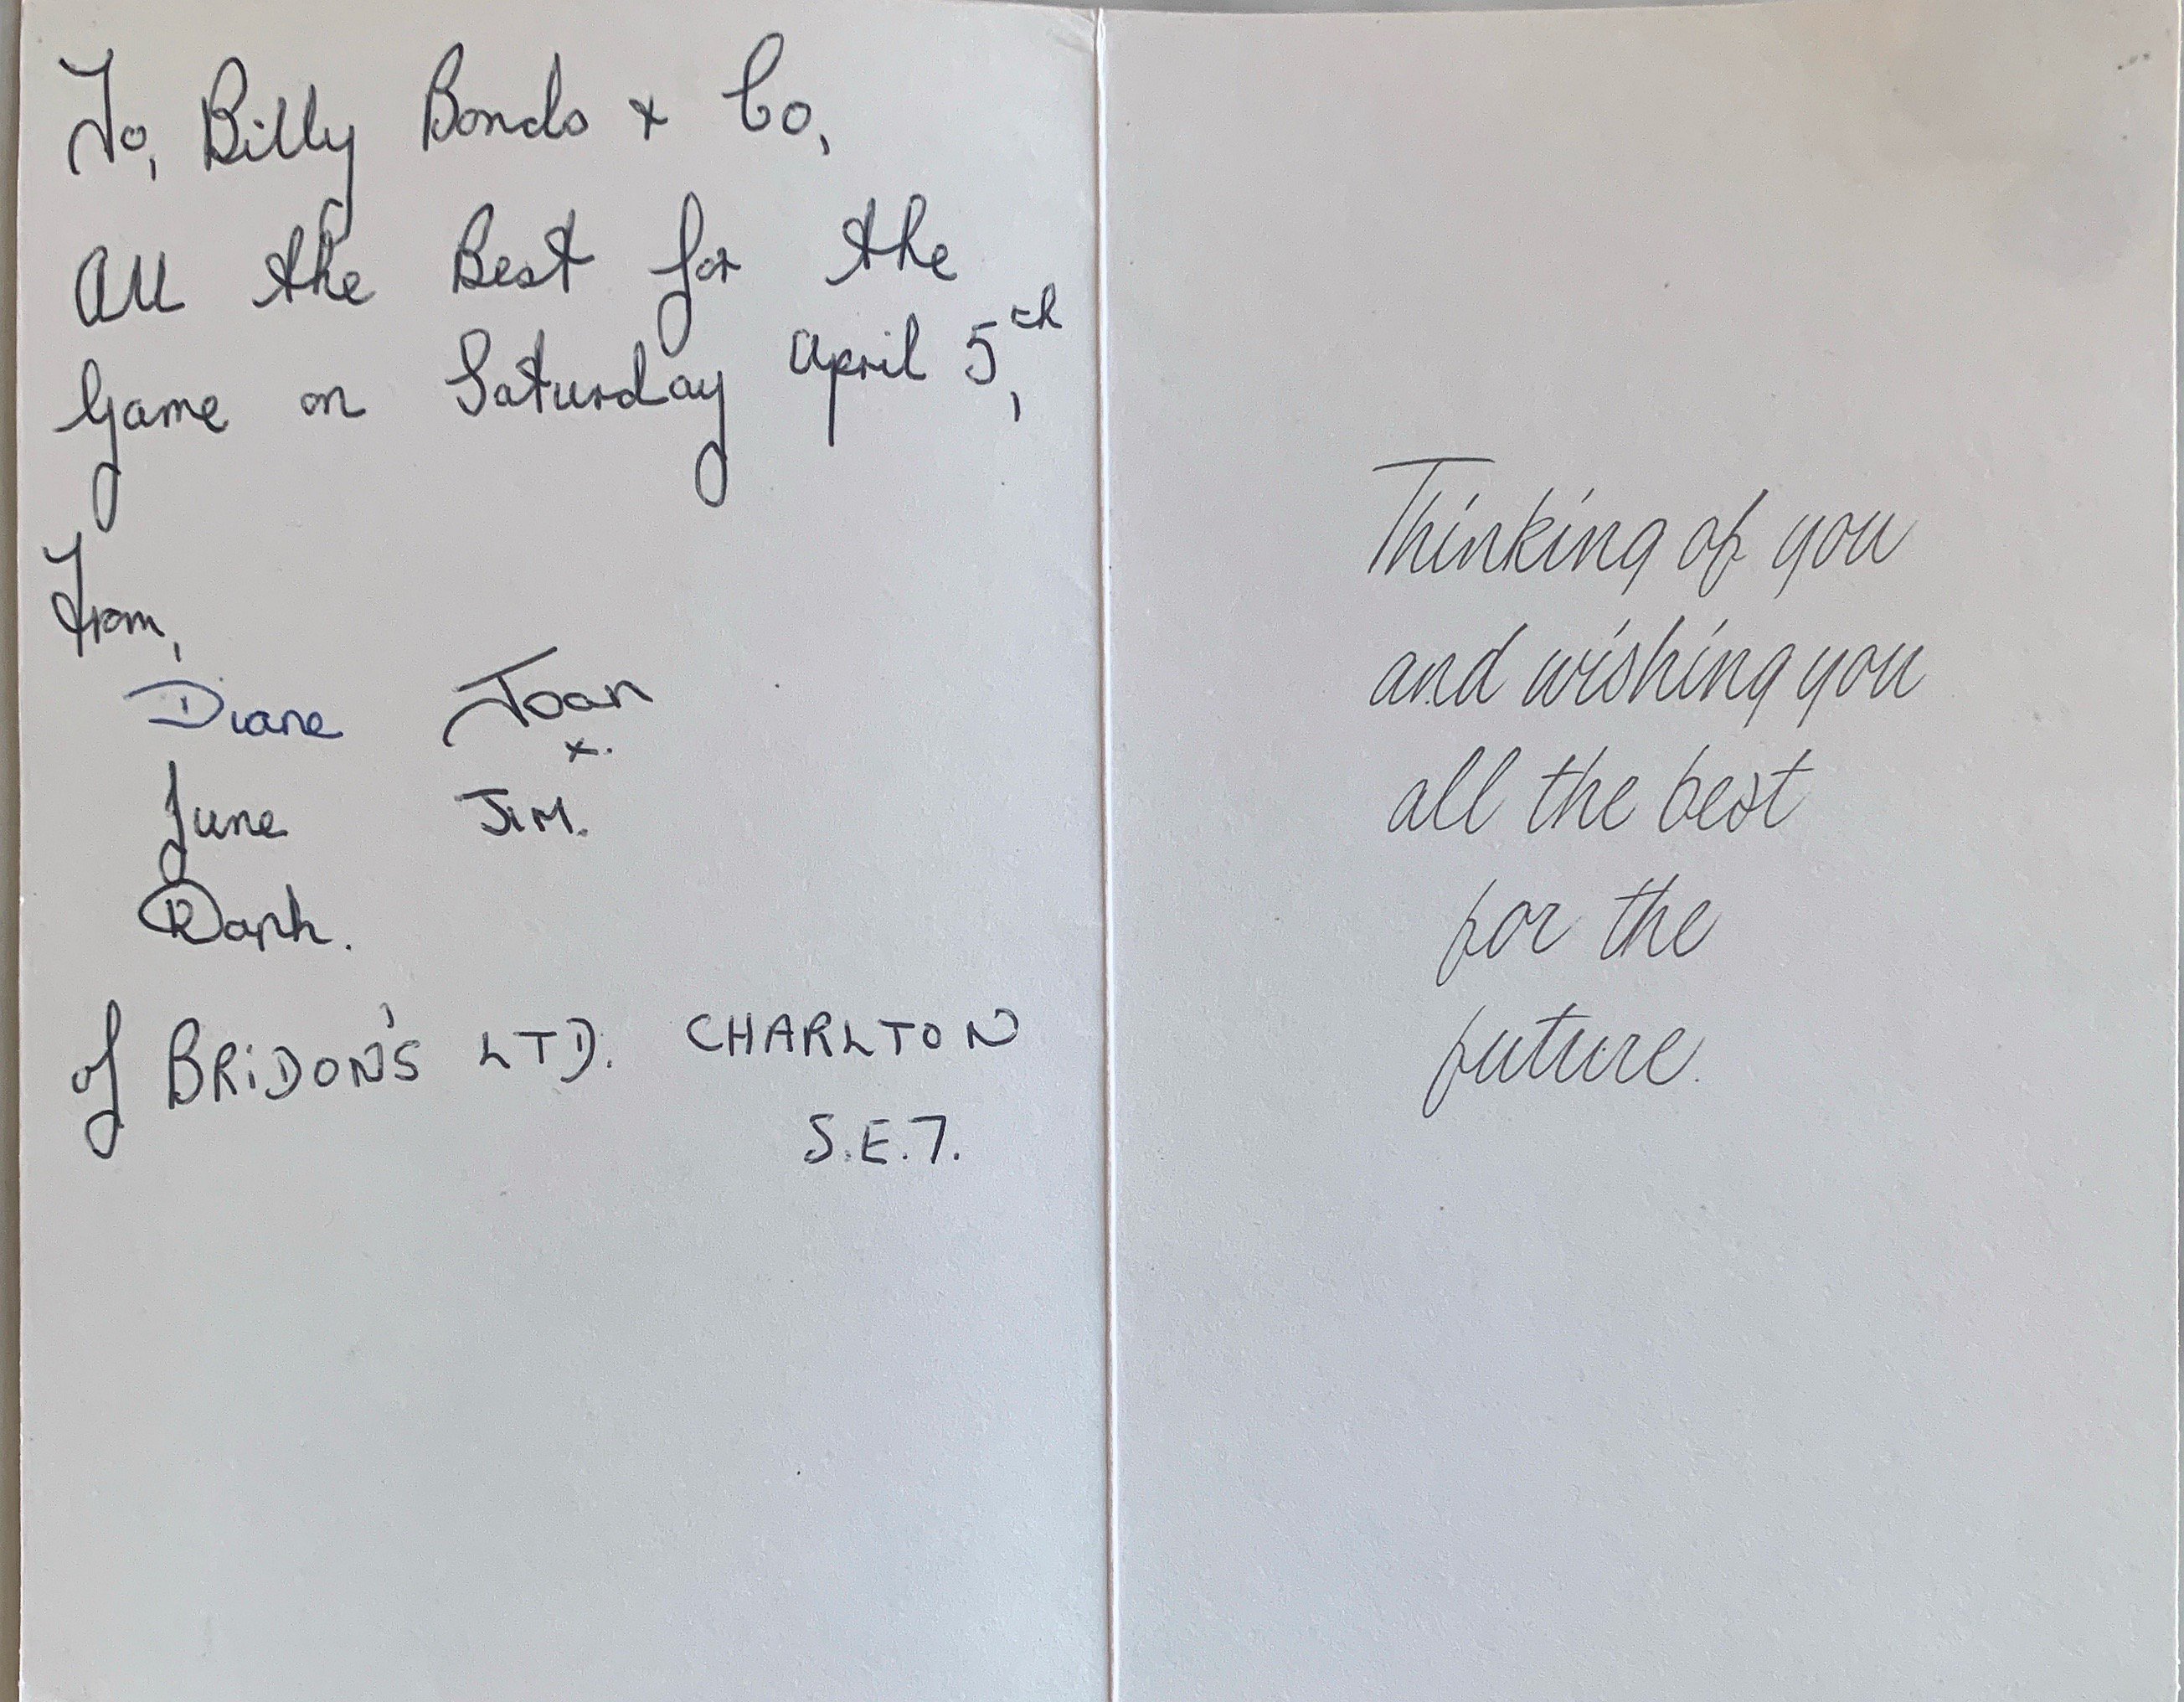 To, Billy Bonds & Co,
All the Best for the
Game on Saturday April 5th,
From,
Diane Joan
x.
June JIM.
of BRIDON'S LTD. CHARLTON
S.E.7.
Thinking of you
and wishing you
all the best
for the
future.